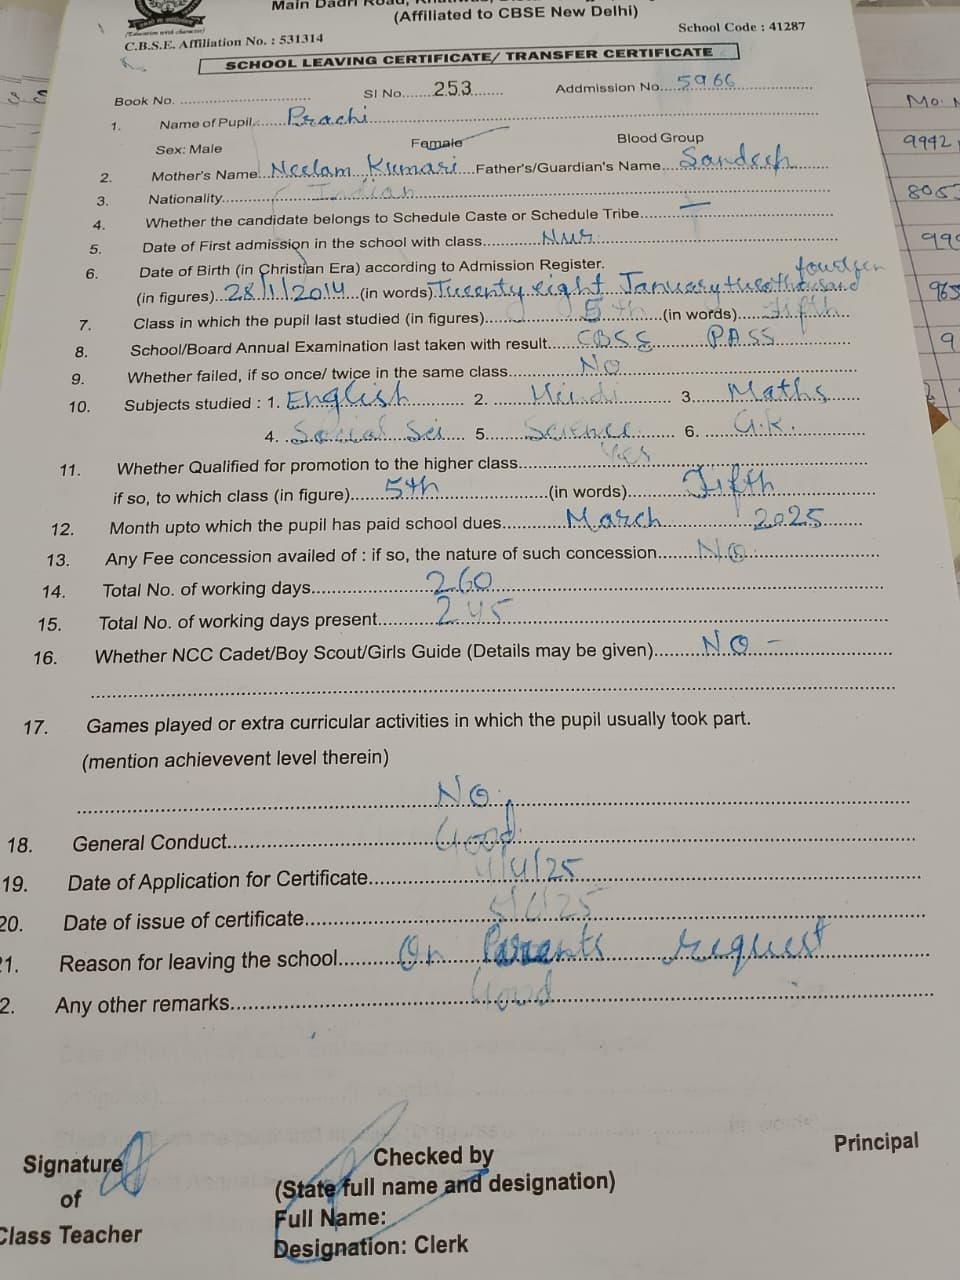 Main Dadri Road,
(Affiliated to CBSE New Delhi)
(Education with character)
C.B.S.E. Affiliation No. : 531314
School Code : 41287
SCHOOL LEAVING CERTIFICATE/ TRANSFER CERTIFICATE
Book No. ..... Sl No. 253 Addmission No. 5966
1. Name of Pupil. Prachi
Sex: Male Female Blood Group
2. Mother's Name. Neelam Kumari Father's/Guardian's Name. Sandeep
3. Nationality. Indian
4. Whether the candidate belongs to Schedule Caste or Schedule Tribe. —
5. Date of First admission in the school with class. Nur.
6. Date of Birth (in Christian Era) according to Admission Register. fourteen
(in figures) 28/1/2014 (in words) Twenty eight January two thousand
7. Class in which the pupil last studied (in figures) 5th (in words) Fifth
8. School/Board Annual Examination last taken with result. CBSE PASS
9. Whether failed, if so once/ twice in the same class. No
10. Subjects studied : 1. English 2. Hindi 3. Maths
4. Social Sci 5. Science 6. G.K.
11. Whether Qualified for promotion to the higher class. Yes
if so, to which class (in figure) 5th (in words) Fifth
12. Month upto which the pupil has paid school dues. March 2025
13. Any Fee concession availed of : if so, the nature of such concession. No
14. Total No. of working days. 260
15. Total No. of working days present. 245
16. Whether NCC Cadet/Boy Scout/Girls Guide (Details may be given). NO -
17. Games played or extra curricular activities in which the pupil usually took part.
(mention achievevent level therein)
No.
18. General Conduct. Good
19. Date of Application for Certificate. 4/4/25
20. Date of issue of certificate.
21. Reason for leaving the school. On Parents request
2. Any other remarks. Good
Signature
of
Class Teacher
Checked by
(State full name and designation)
Full Name:
Designation: Clerk
Principal